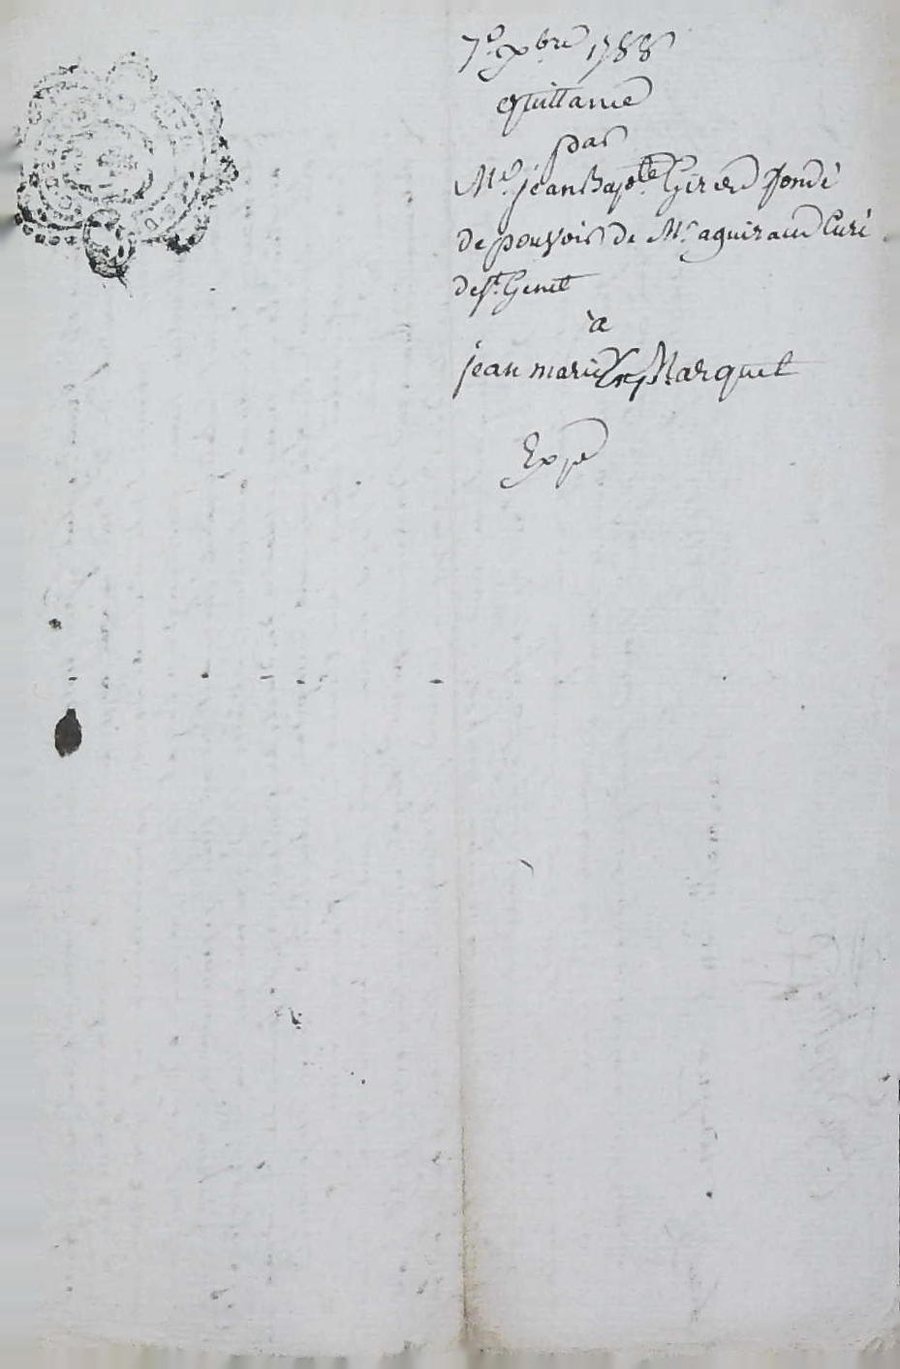 7e xbre 1788
quittance
par
Me jean Bapte Girard fondé
de pouvoir de Mr aguiraud Curé
de st Genet
à
jean marie Marquet
Expe